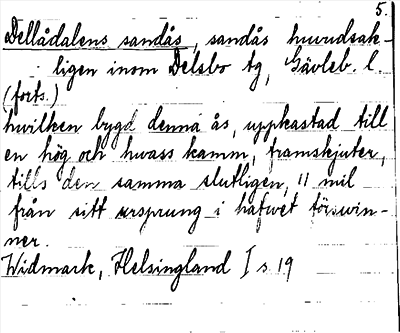 5.
Dellådalens sandås, sandås huvudsak-
ligen inom Delsbo tg, Gävleb. l.
(forts.)
hwilken bygd denna ås, uppkastad till
en hög och hwass kamm, framskjuter,
tills den samma slutligen, 11 mil
från sitt ursprung i hafwet förswin-
ner.
Widmark, Helsingland I s. 19